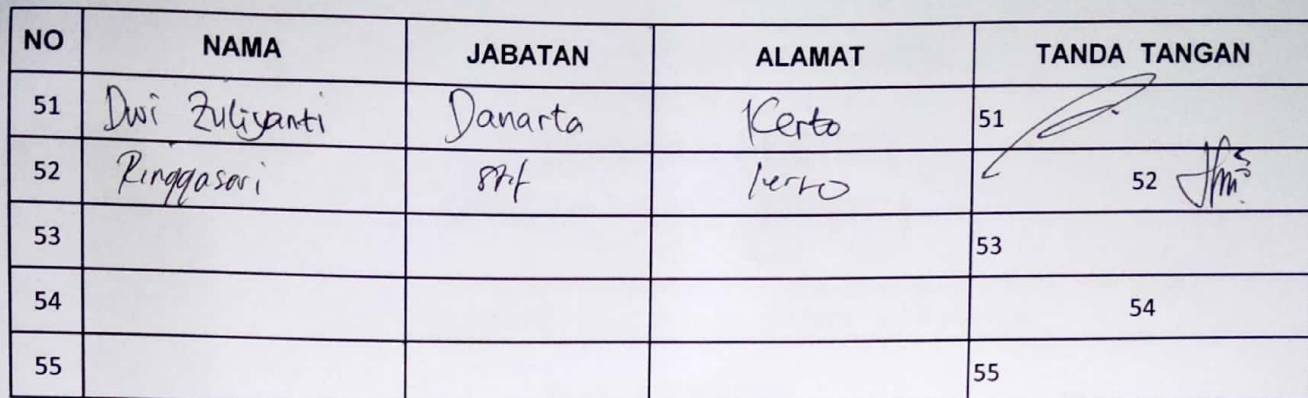 NO NAMA JABATAN ALAMAT TANDA TANGAN
51 Dwi Zuliyanti Danarta Kerto 51
52 Ringgasari Kerto 52
53 53
54 54
55 55